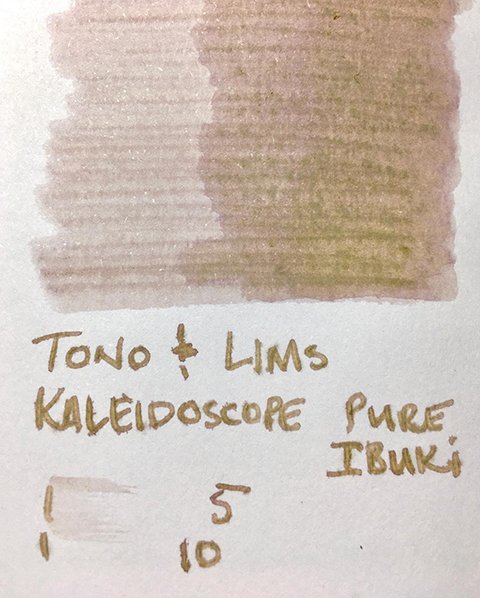 TONO & LIMS
KALEIDOSCOPE PURE
IBUKi
5
10